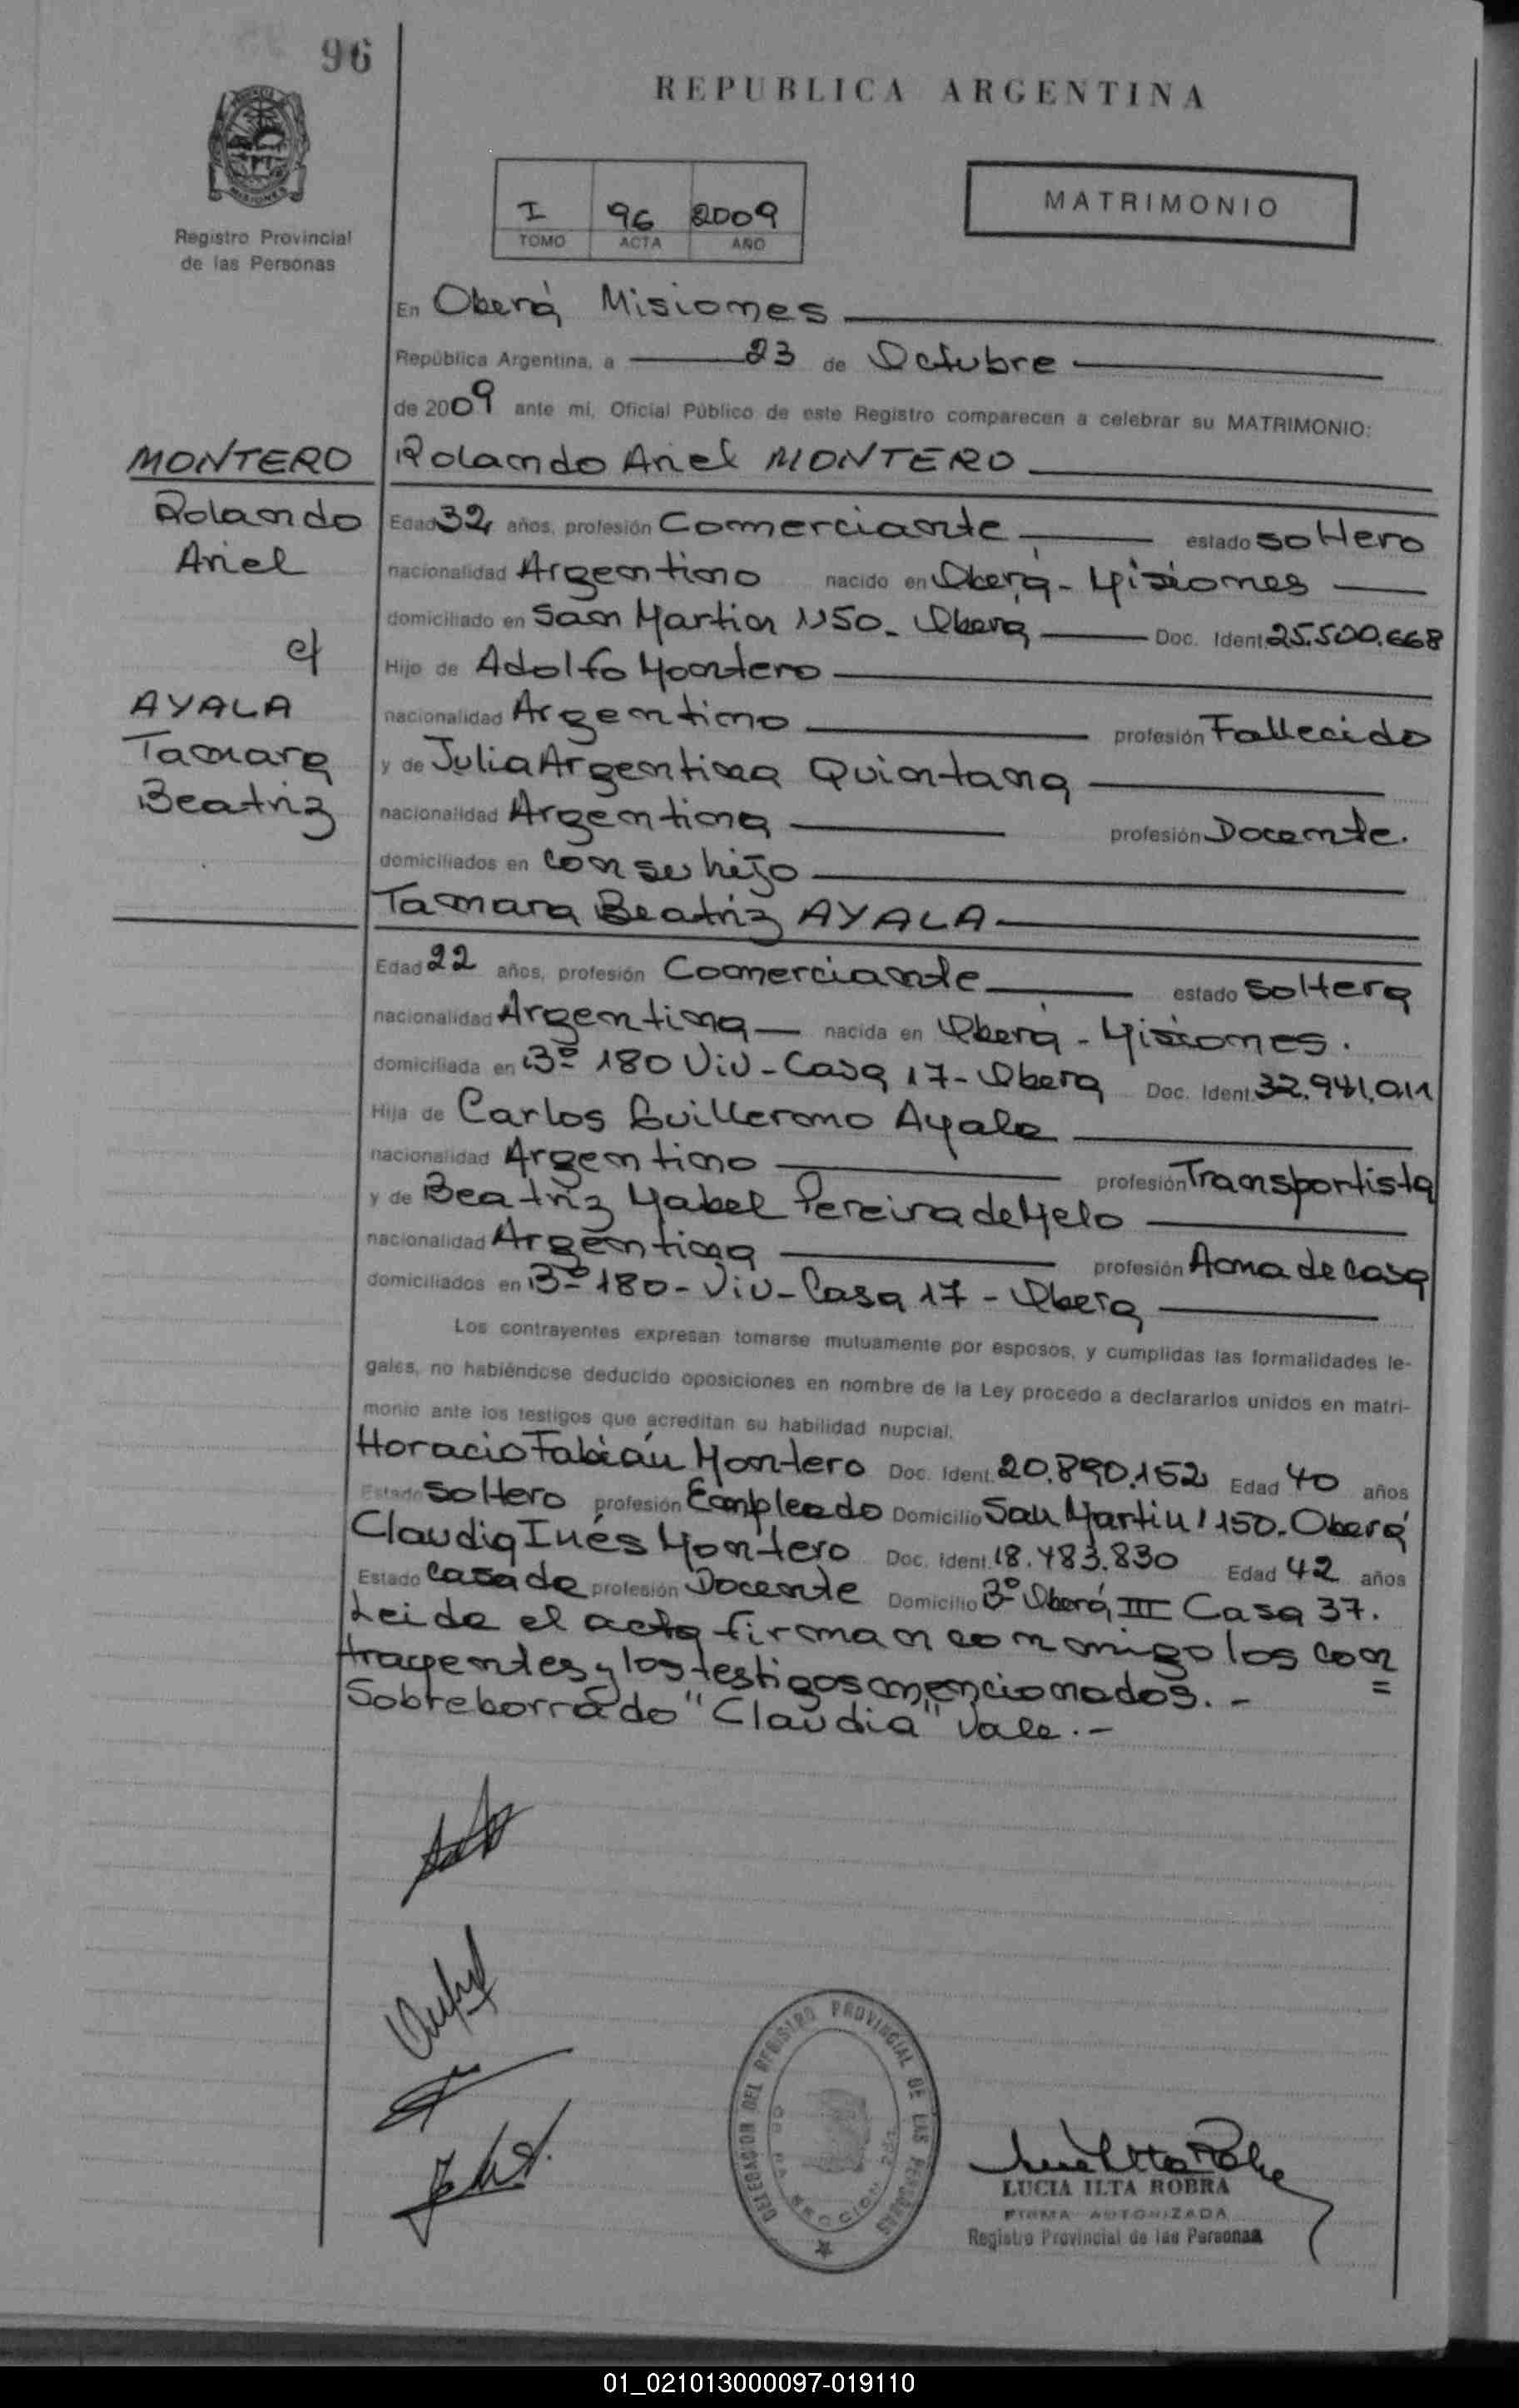 96
REPUBLICA ARGENTINA
MISIONES
Registro Provincial
de las Personas
I 96 2009
TOMO ACTA AÑO
MATRIMONIO
En Oberá Misiones
República Argentina, a 23 de Octubre
de 2009 ante mí, Oficial Público de este Registro comparecen a celebrar su MATRIMONIO:
MONTERO
Rolando
Ariel
c/
AYALA
Tamara
Beatriz
Rolando Ariel MONTERO
Edad 32 años, profesión Comerciante estado soltero
nacionalidad Argentino nacido en Oberá - Misiones
domiciliado en San Martin 1150 - Oberá Doc. Ident. 25.500.668
Hijo de Adolfo Montero
nacionalidad Argentino profesión Fallecido
y de Julia Argentina Quintana
nacionalidad Argentina profesión Docente.
domiciliados en con su hijo
Tamara Beatriz AYALA
Edad 22 años, profesión Comerciante estado soltera
nacionalidad Argentina nacida en Oberá - Misiones.
domiciliada en Bº 180 Viv - Casa 17 - Obera Doc. Ident. 32.941.011
Hija de Carlos Guillermo Ayala
nacionalidad Argentino profesión Transportista
y de Beatriz Mabel Pereira de Melo
nacionalidad Argentina profesión Ama de casa
domiciliados en Bº 180 - Viv - Casa 17 - Obera
Los contrayentes expresan tomarse mutuamente por esposos, y cumplidas las formalidades le-
gales, no habiéndose deducido oposiciones en nombre de la Ley procedo a declararlos unidos en matri-
monio ante los testigos que acreditan su habilidad nupcial.
Horacio Fabián Montero Doc. Ident. 20.890.152 Edad 40 años
Estado soltero profesión Empleado Domicilio San Martin 1150. Oberá
Claudia Inés Montero Doc. Ident. 18.483.830 Edad 42 años
Estado Casada profesión Docente Domicilio Bº Oberá III Casa 37.
Leida el acta firman conmigo los con=
trayentes y los testigos mencionados. -
Sobreborrado "Claudia" Vale. -
DELEGACION DEL REGISTRO PROVINCIAL DE LAS PERSONAS
LUCIA ILTA ROBRA
FIRMA AUTORIZADA
Registro Provincial de las Personas
01_021013000097-019110